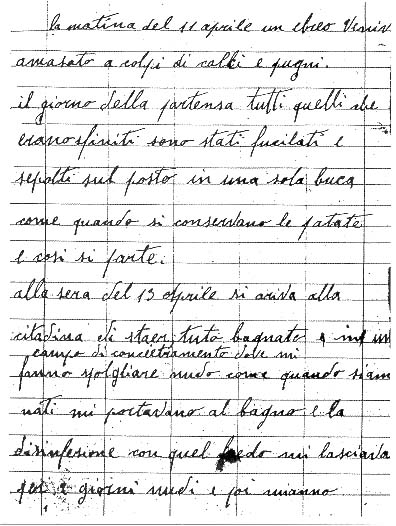 la matina del 11 aprile un ebreo Veniv
amasato a colpi di calci e pugni.
il giorno della partensa tutti quelli che
erano sfiniti sono stati fucilati e
sepolti sul posto in una sola buca
come quando si conservano le patate
e cosi si parte.
alla sera del 13 aprile si ariva alla
citadina di staer, tuto bagnato e in un
campo di concietramento dove mi
fanno spolgliare nudo come quando siam
nati mi portavano al bagno e la
disinfesione con quel fredo mi lasciava
per 2 giorni nudi e poi mianno